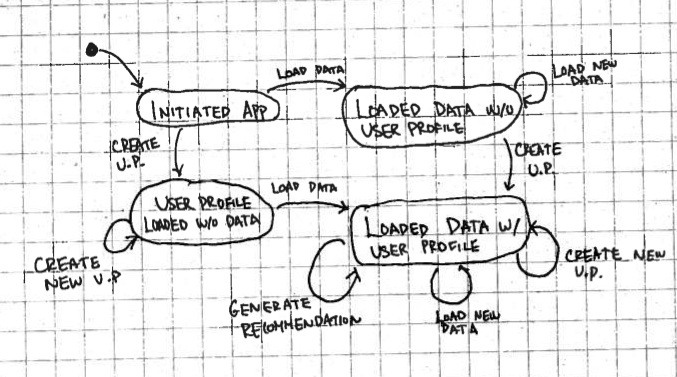 LOAD DATA
LOAD NEW
DATA
INITIATED APP
LOADED DATA W/O
USER PROFILE
CREATE
U.P.
CREATE
U.P.
USER PROFILE
LOADED W/O DATA
LOAD DATA
LOADED DATA W/
USER PROFILE
CREATE
NEW U.P
CREATE NEW
U.P.
GENERATE
RECOMMENDATION
LOAD NEW
DATA